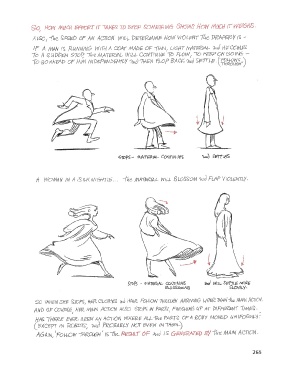 SO, HOW MUCH EFFORT IT TAKES TO PUSH SOMETHING SHOWS HOW MUCH IT WEIGHS.
ALSO, THE SPEED OF AN ACTION WILL DETERMINE HOW VIOLENT THE DRAPERY IS -
IF A MAN IS RUNNING WITH A COAT MADE OF THIN, LIGHT MATERIAL and HE COMES
TO A SUDDEN STOP THE MATERIAL WILL CONTINUE TO FLOW, TO KEEP ON GOING -
TO GO AHEAD OF HIM INDEPENDENTLY and THEN FLOP BACK and SETTLE (FOLLOWS THROUGH)
STOPS - MATERIAL CONTINUES
and SETTLES
A WOMAN IN A SILK NIGHTIE... THE MATERIAL WILL BLOSSOM and FLAP VIOLENTLY.
STOPS - MATERIAL CONTINUES
BLOSSOMING
and WILL SETTLE MORE
SLOWLY.
SO WHEN SHE STOPS, HER CLOTHES and HAIR FOLLOW THROUGH ARRIVING LATER THAN the MAIN ACTION
AND OF COURSE, HER MAIN ACTION ALSO STOPS IN PARTS, FINISHING UP AT DIFFERENT TIMES.
HAS THERE EVER BEEN AN ACTION WHERE ALL THE PARTS OF A BODY MOVED UNIFORMLY?
(EXCEPT IN ROBOTS, and PROBABLY NOT EVEN IN THEM.)
AGAIN, 'FOLLOW THROUGH' IS THE RESULT OF and IS GENERATED BY THE MAIN ACTION.
265